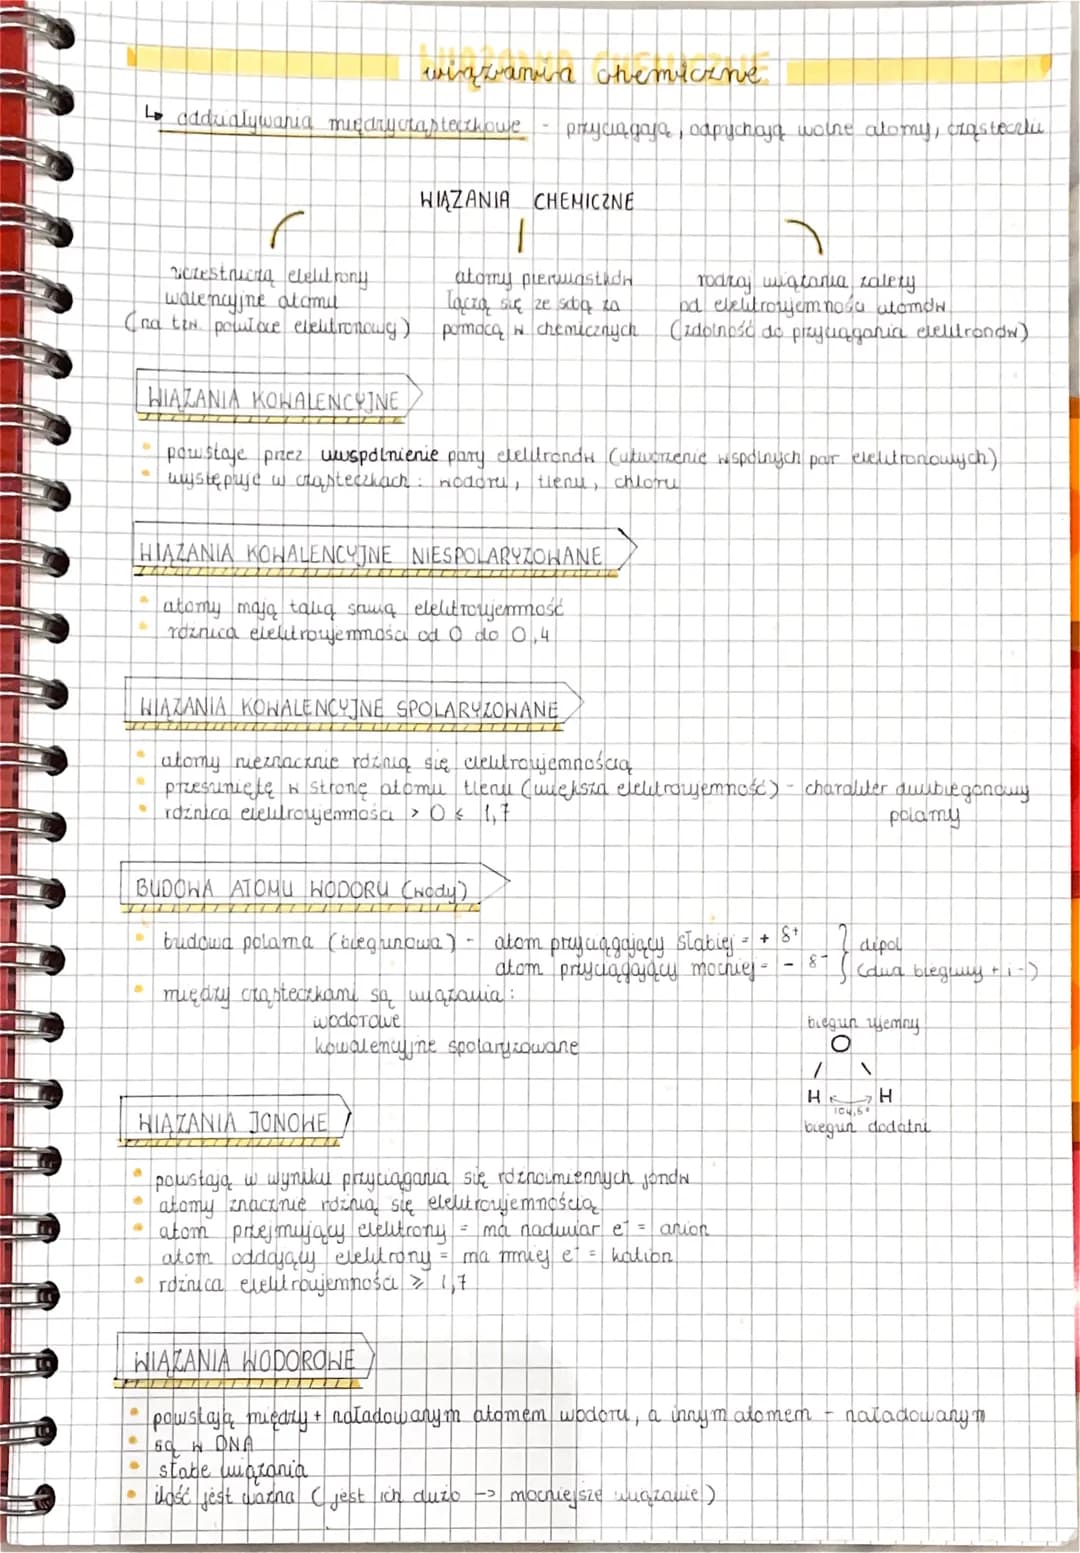 WIĄZANIA CHEMICZNE
wiązania chemiczne
↳ oddziaływania międzycząsteczkowe - przyciągają, odpychają wolne atomy, cząsteczki
WIĄZANIA CHEMICZNE
uczestniczą elektrony walencyjne atomu (na tzw. powłoce elektronowej)
atomy pierwiastków łączą się ze sobą za pomocą w chemicznych
rodzaj wiązania zależy od elektroujemności atomów (zdolność do przyciągania elektronów)
WIĄZANIA KOWALENCYJNE
• powstaje przez uwspólnienie pary elektronów (utworzenie wspólnych par elektronowych)
• występuje w cząsteczkach: wodoru, tlenu, chloru
WIĄZANIA KOWALENCYJNE NIESPOLARYZOWANE
• atomy mają taką samą elektroujemność
• różnica elektroujemności od 0 do 0,4
WIĄZANIA KOWALENCYJNE SPOLARYZOWANE
• atomy nieznacznie różnią się elektroujemnością
• przesunięte w stronę atomu tlenu (większa elektroujemność) - charakter dwubiegunowy
polarny
• różnica elektroujemności > 0 ≤ 1,7
BUDOWA ATOMU WODORU (wody)
• budowa polarna (biegunowa) - atom przyciągający słabiej = + δ+
atom przyciągający mocniej = - δ-
} dipol
(dwa bieguny + i -)
• między cząsteczkami są wiązania:
wodorowe
kowalencyjne spolaryzowane
biegun ujemny
O
/ \
H H
104,5°
biegun dodatni
WIĄZANIA JONOWE
• powstają w wyniku przyciągania się różnoimiennych jonów
• atomy znacznie różnią się elektroujemnością
• atom przejmujący elektrony = ma nadmiar e⁻ = anion
atom oddający elektrony = ma mniej e⁻ = kation
• różnica elektroujemności ≥ 1,7
WIĄZANIA WODOROWE
• powstają między + naładowanym atomem wodoru, a innym atomem - naładowanym
• są w DNA
• słabe wiązania
• ilość jest ważna (jest ich dużo -> mocniejsze wiązanie)